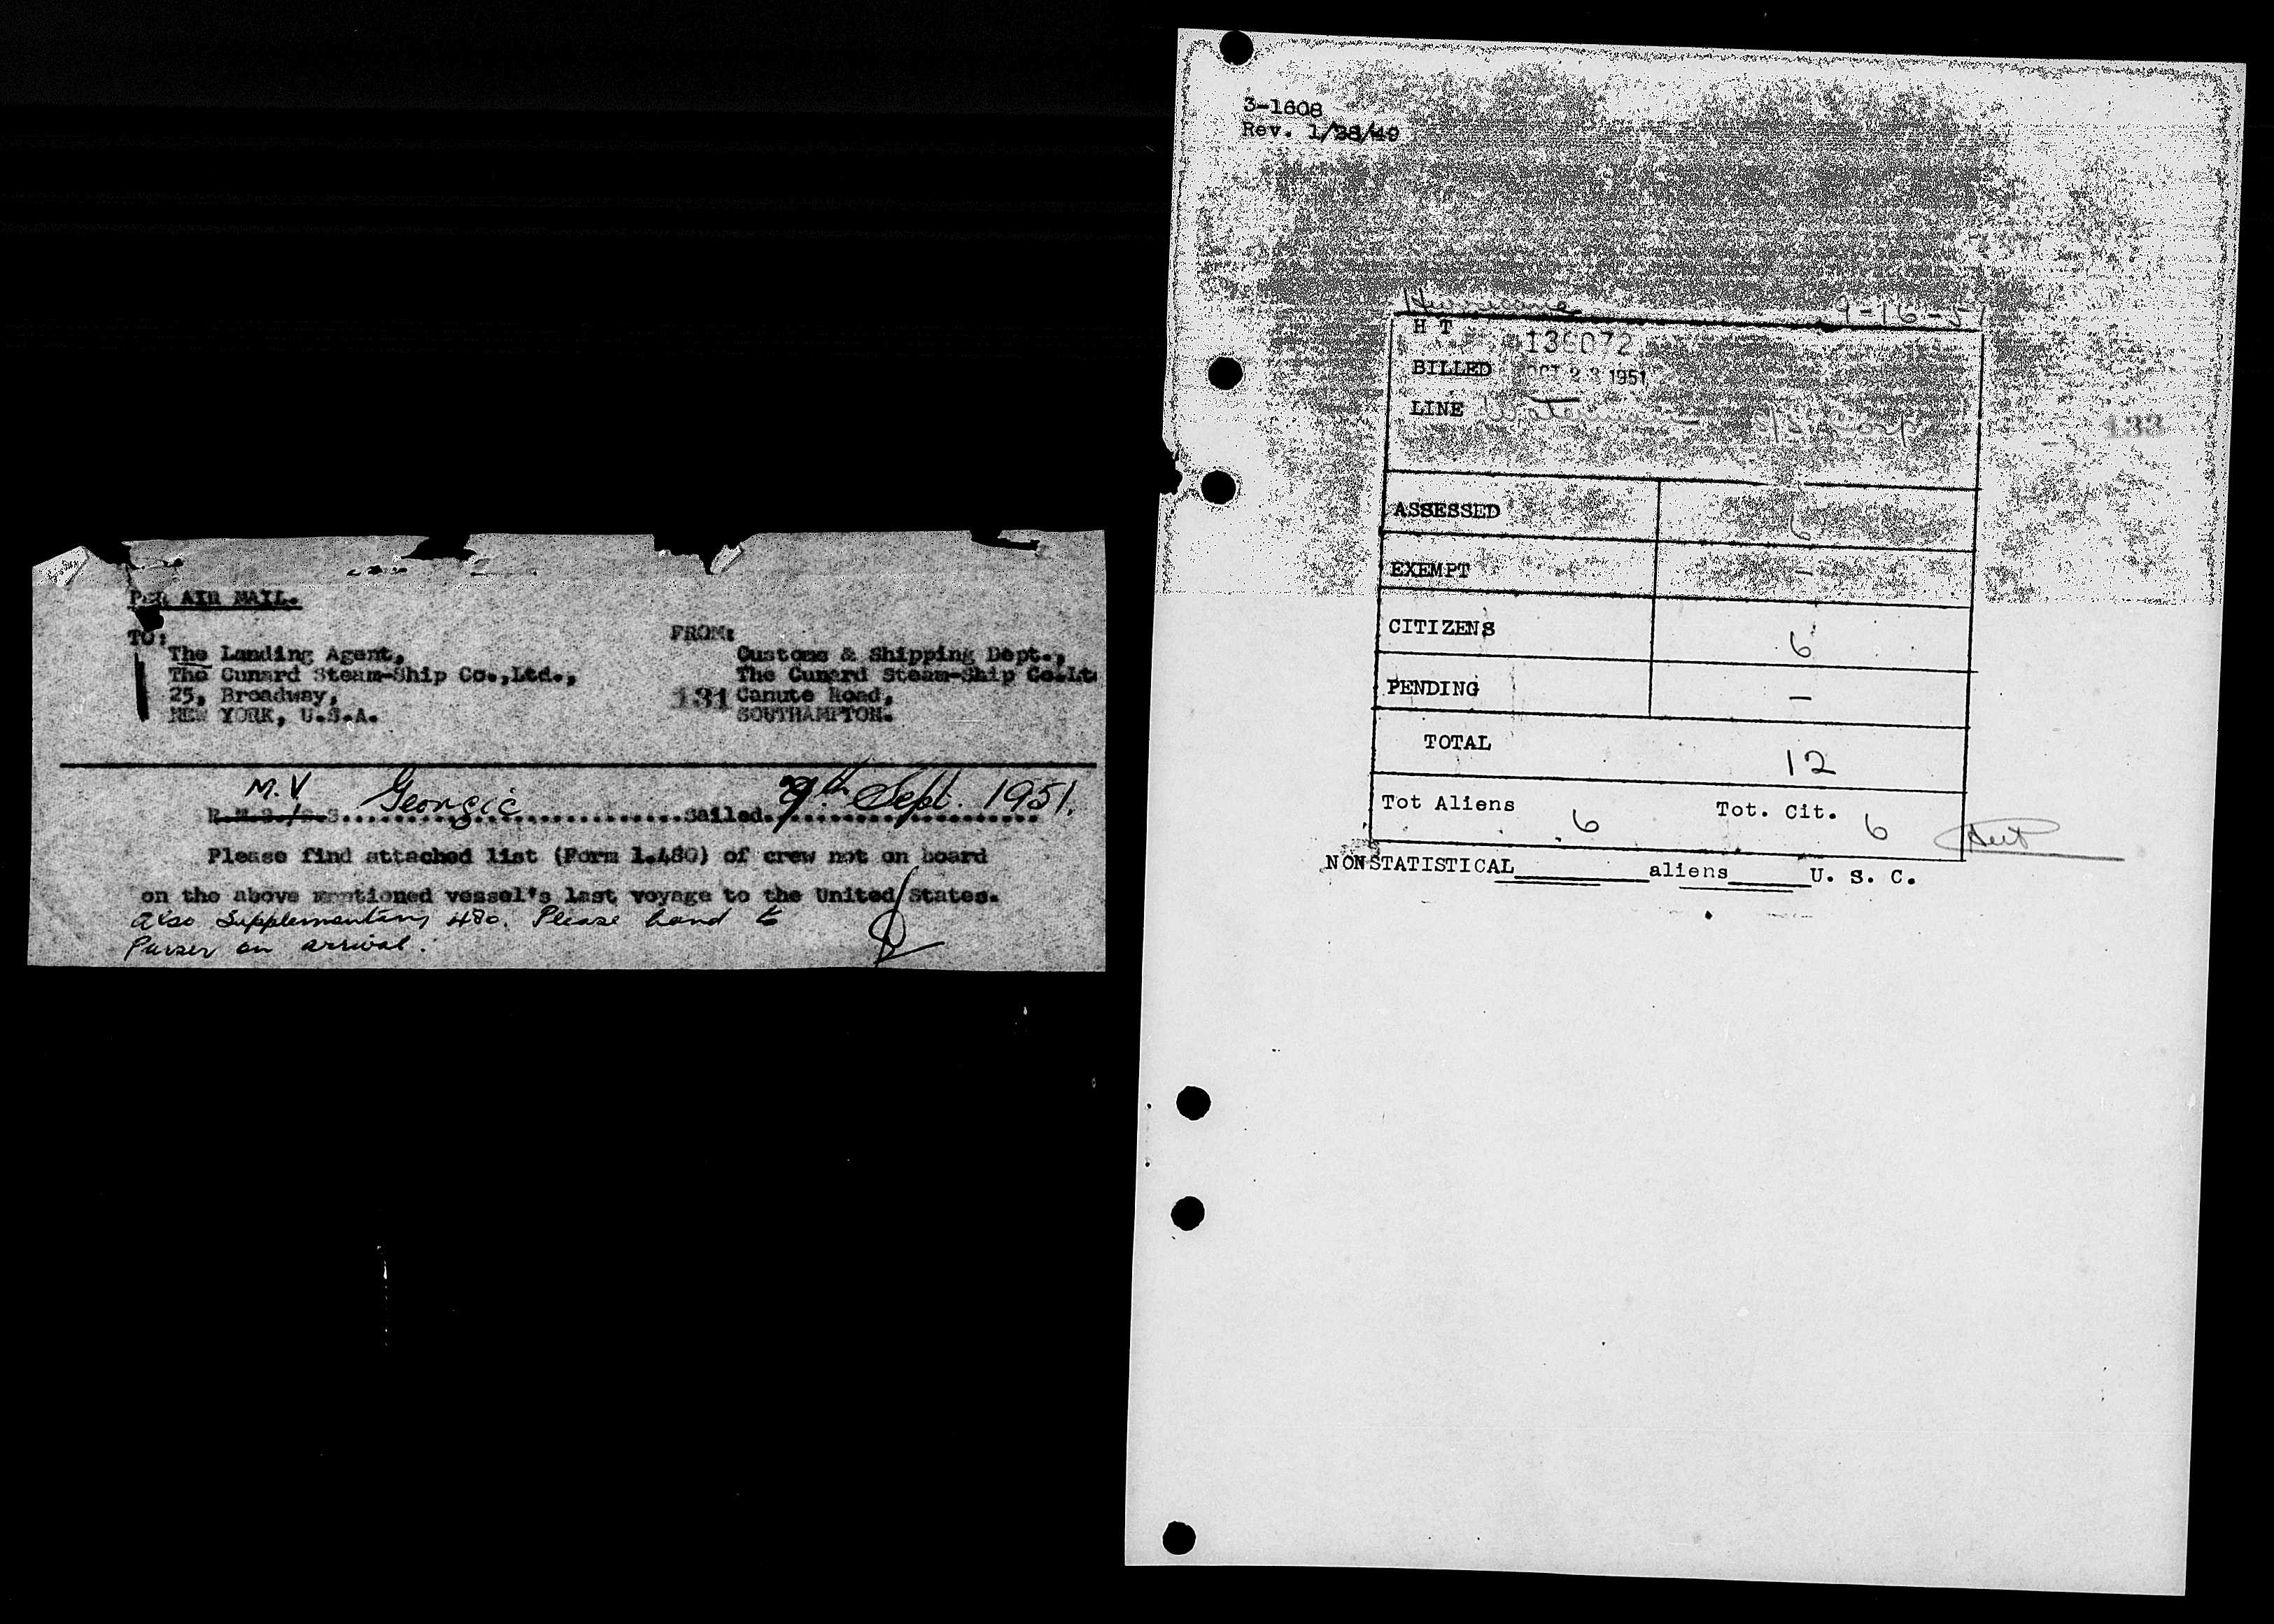 PER AIR MAIL.
TO:
The Landing Agent,
The Cunard Steam-Ship Co.,Ltd.,
25, Broadway,
NEW YORK, U.S.A.
FROM:
Customs & Shipping Dept.,
The Cunard Steam-Ship Co.Lt
131 Canute Road,
SOUTHAMPTON.
M.V
R.M.S./S.S. Georgic Sailed 9th Sept. 1951.
Please find attached list (Form 1.480) of crew not on board
on the above mentioned vessel's last voyage to the United States.
Also Supplementary 480. Please hand to
Purser on arrival.
3-1608
Rev. 1/28/49
Hurricane 9-16-51
H T
BILLED OCT 23 1951
LINE Waterman S/S Corp
133
ASSESSED 6
EXEMPT –
CITIZENS 6
PENDING –
TOTAL 12
Tot Aliens 6 Tot. Cit. 6
NONSTATISTICAL________aliens_____U. S. C.